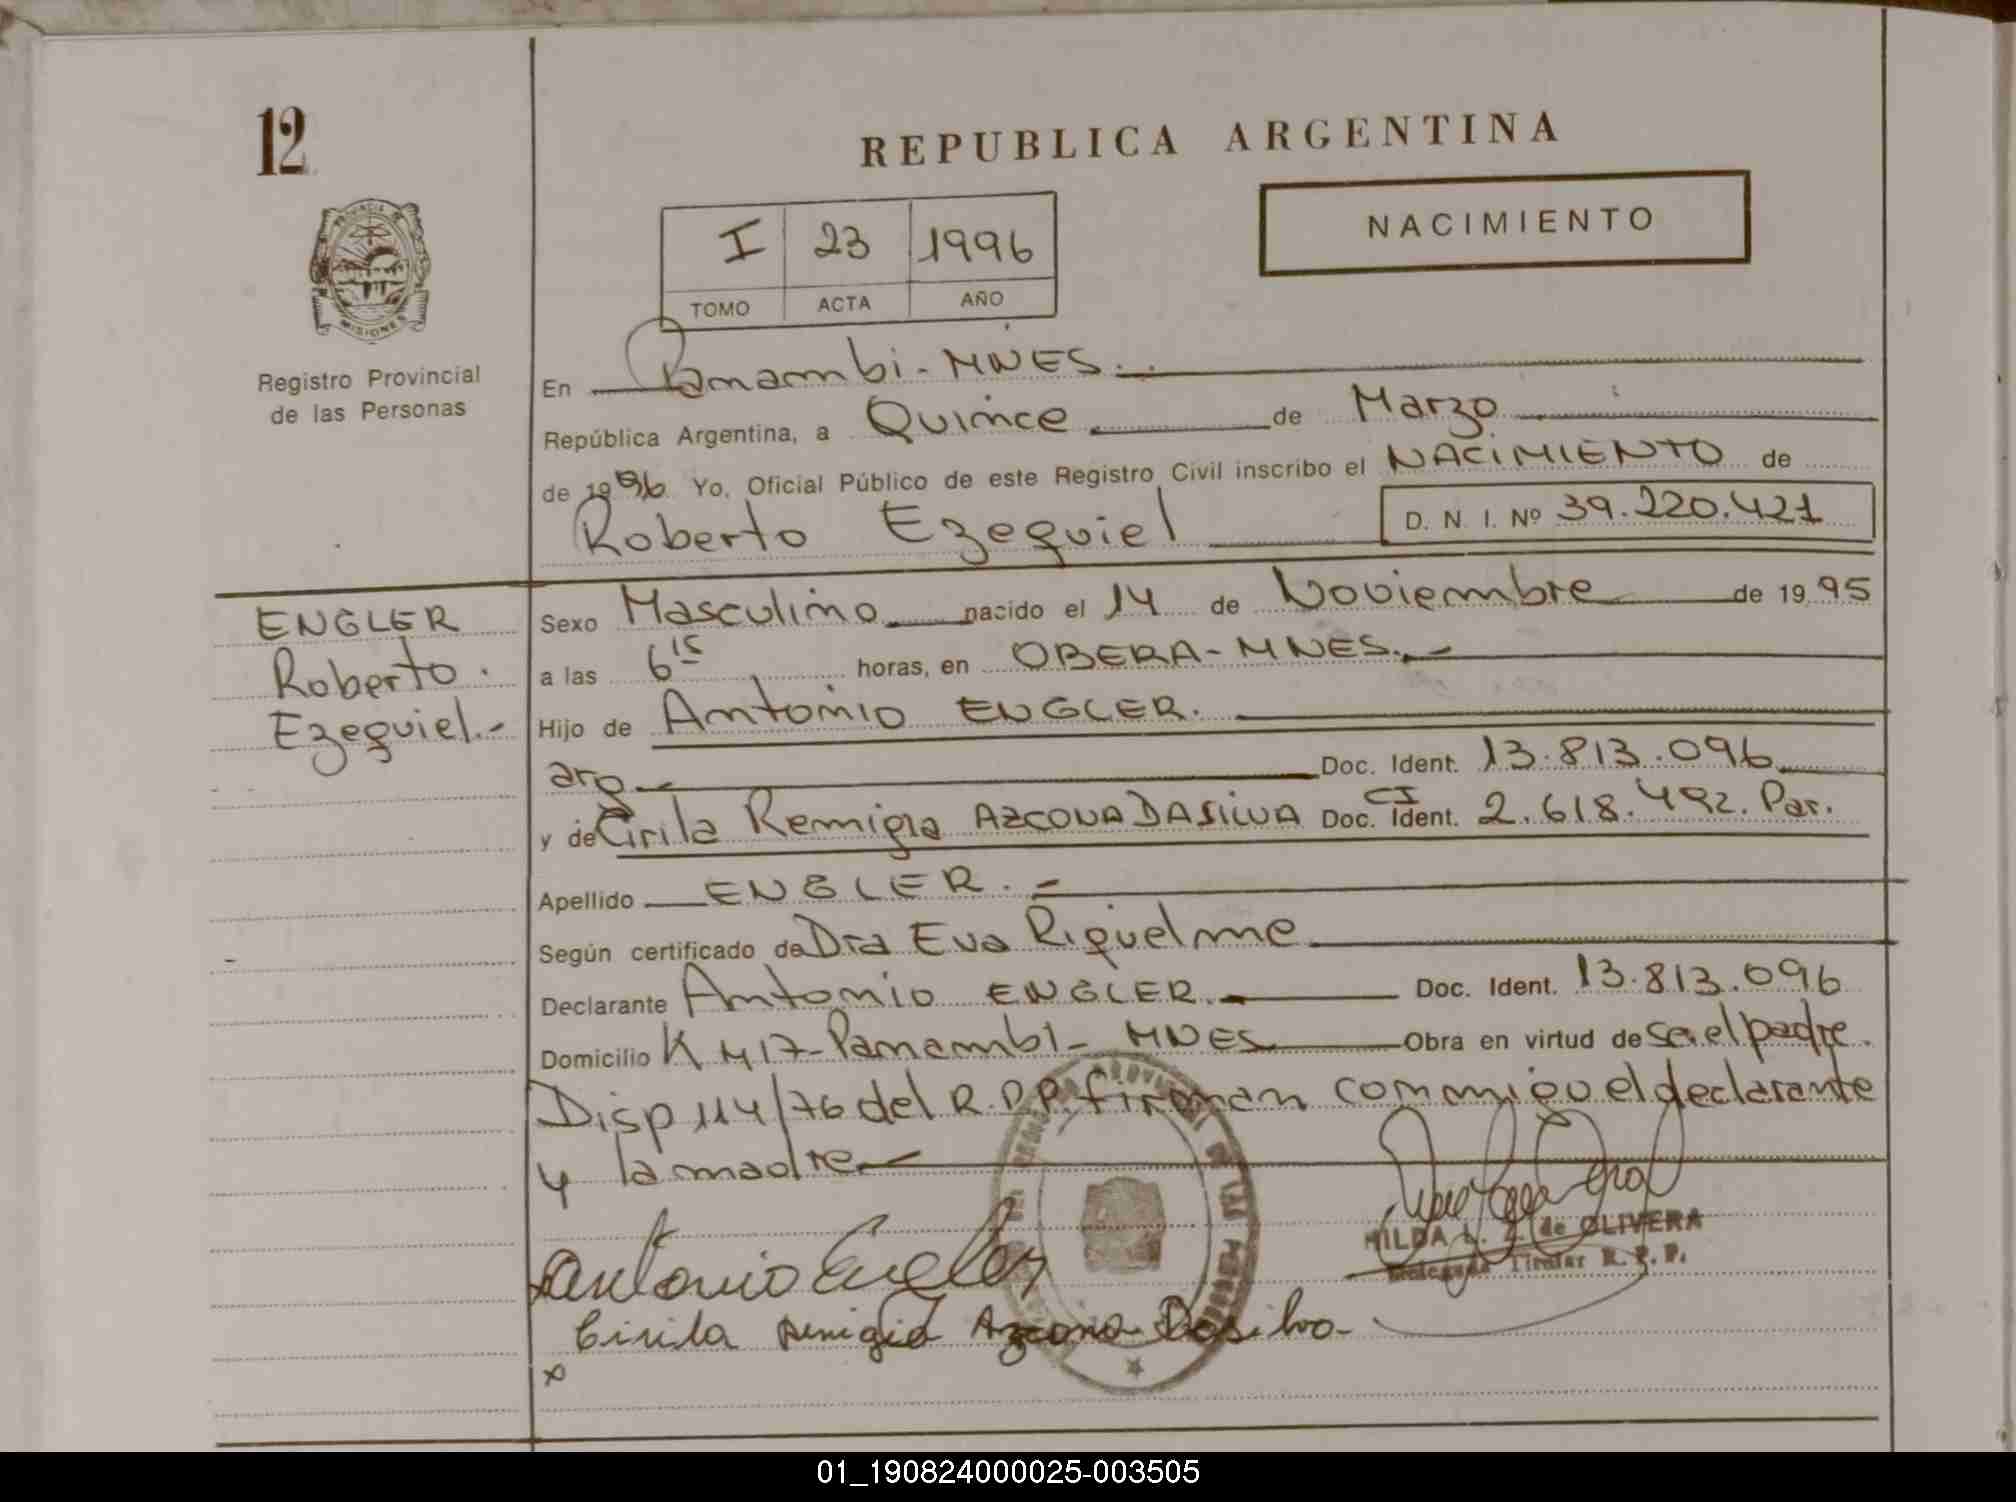 12
REPUBLICA ARGENTINA
NACIMIENTO
I 23 1996
TOMO ACTA AÑO
PROVINCIA DE
MISIONES
Registro Provincial
de las Personas
En Panambi - MNES.
República Argentina, a Quince de Marzo
de 1996 Yo, Oficial Público de este Registro Civil inscribo el NACIMIENTO de
Roberto Ezequiel D. N. I. Nº 39.220.421
ENGLER
Roberto.
Ezequiel.-
Sexo Masculino nacido el 14 de Noviembre de 1995
a las 6 15 horas, en OBERA - MNES.-
Hijo de Antonio ENGLER.
arg Doc. Ident. 13.813.096
y de Cirila Remigia AZCONA DASILVA Doc. Ident. CI 2.618.492. Par.
Apellido ENGLER.-
Según certificado de Dra Eva Riquelme
Declarante Antonio ENGLER.- Doc. Ident. 13.813.096
Domicilio KM17- Panambi - MNES Obra en virtud de ser el padre.
Disp 114/76 del R.P.P. firman conmigo el declarante
y la madre
HILDA L. Z. de OLIVERA
Delegada Titular R. P. P.
Antonio Engler
Cirila Remigia Azcona Dasilva
x
01_190824000025-003505